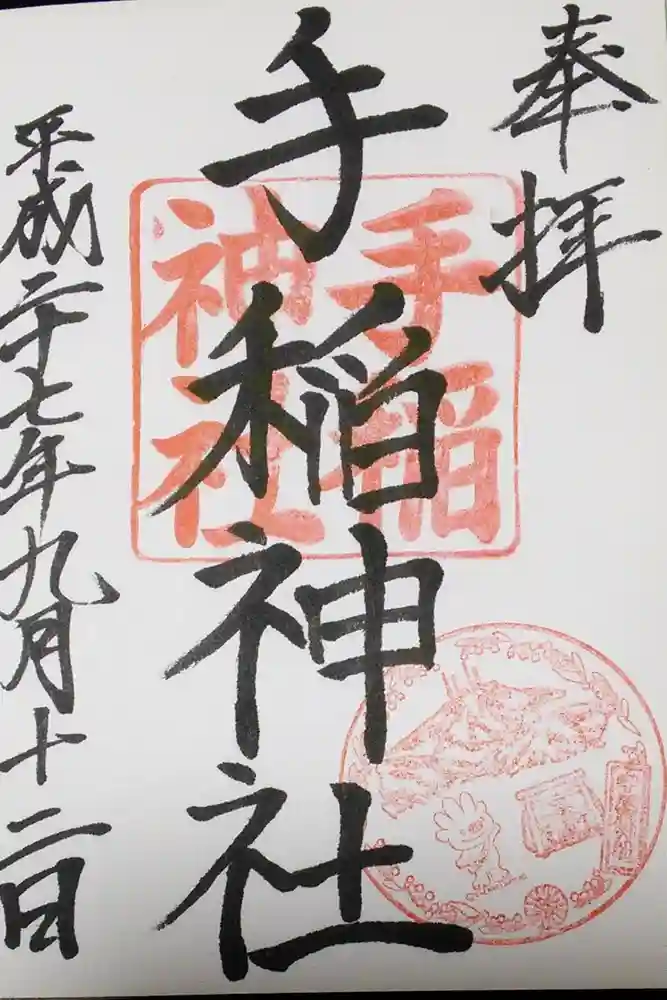 奉拝
手稲神社
手稲
神社
平成二十七年九月十二日